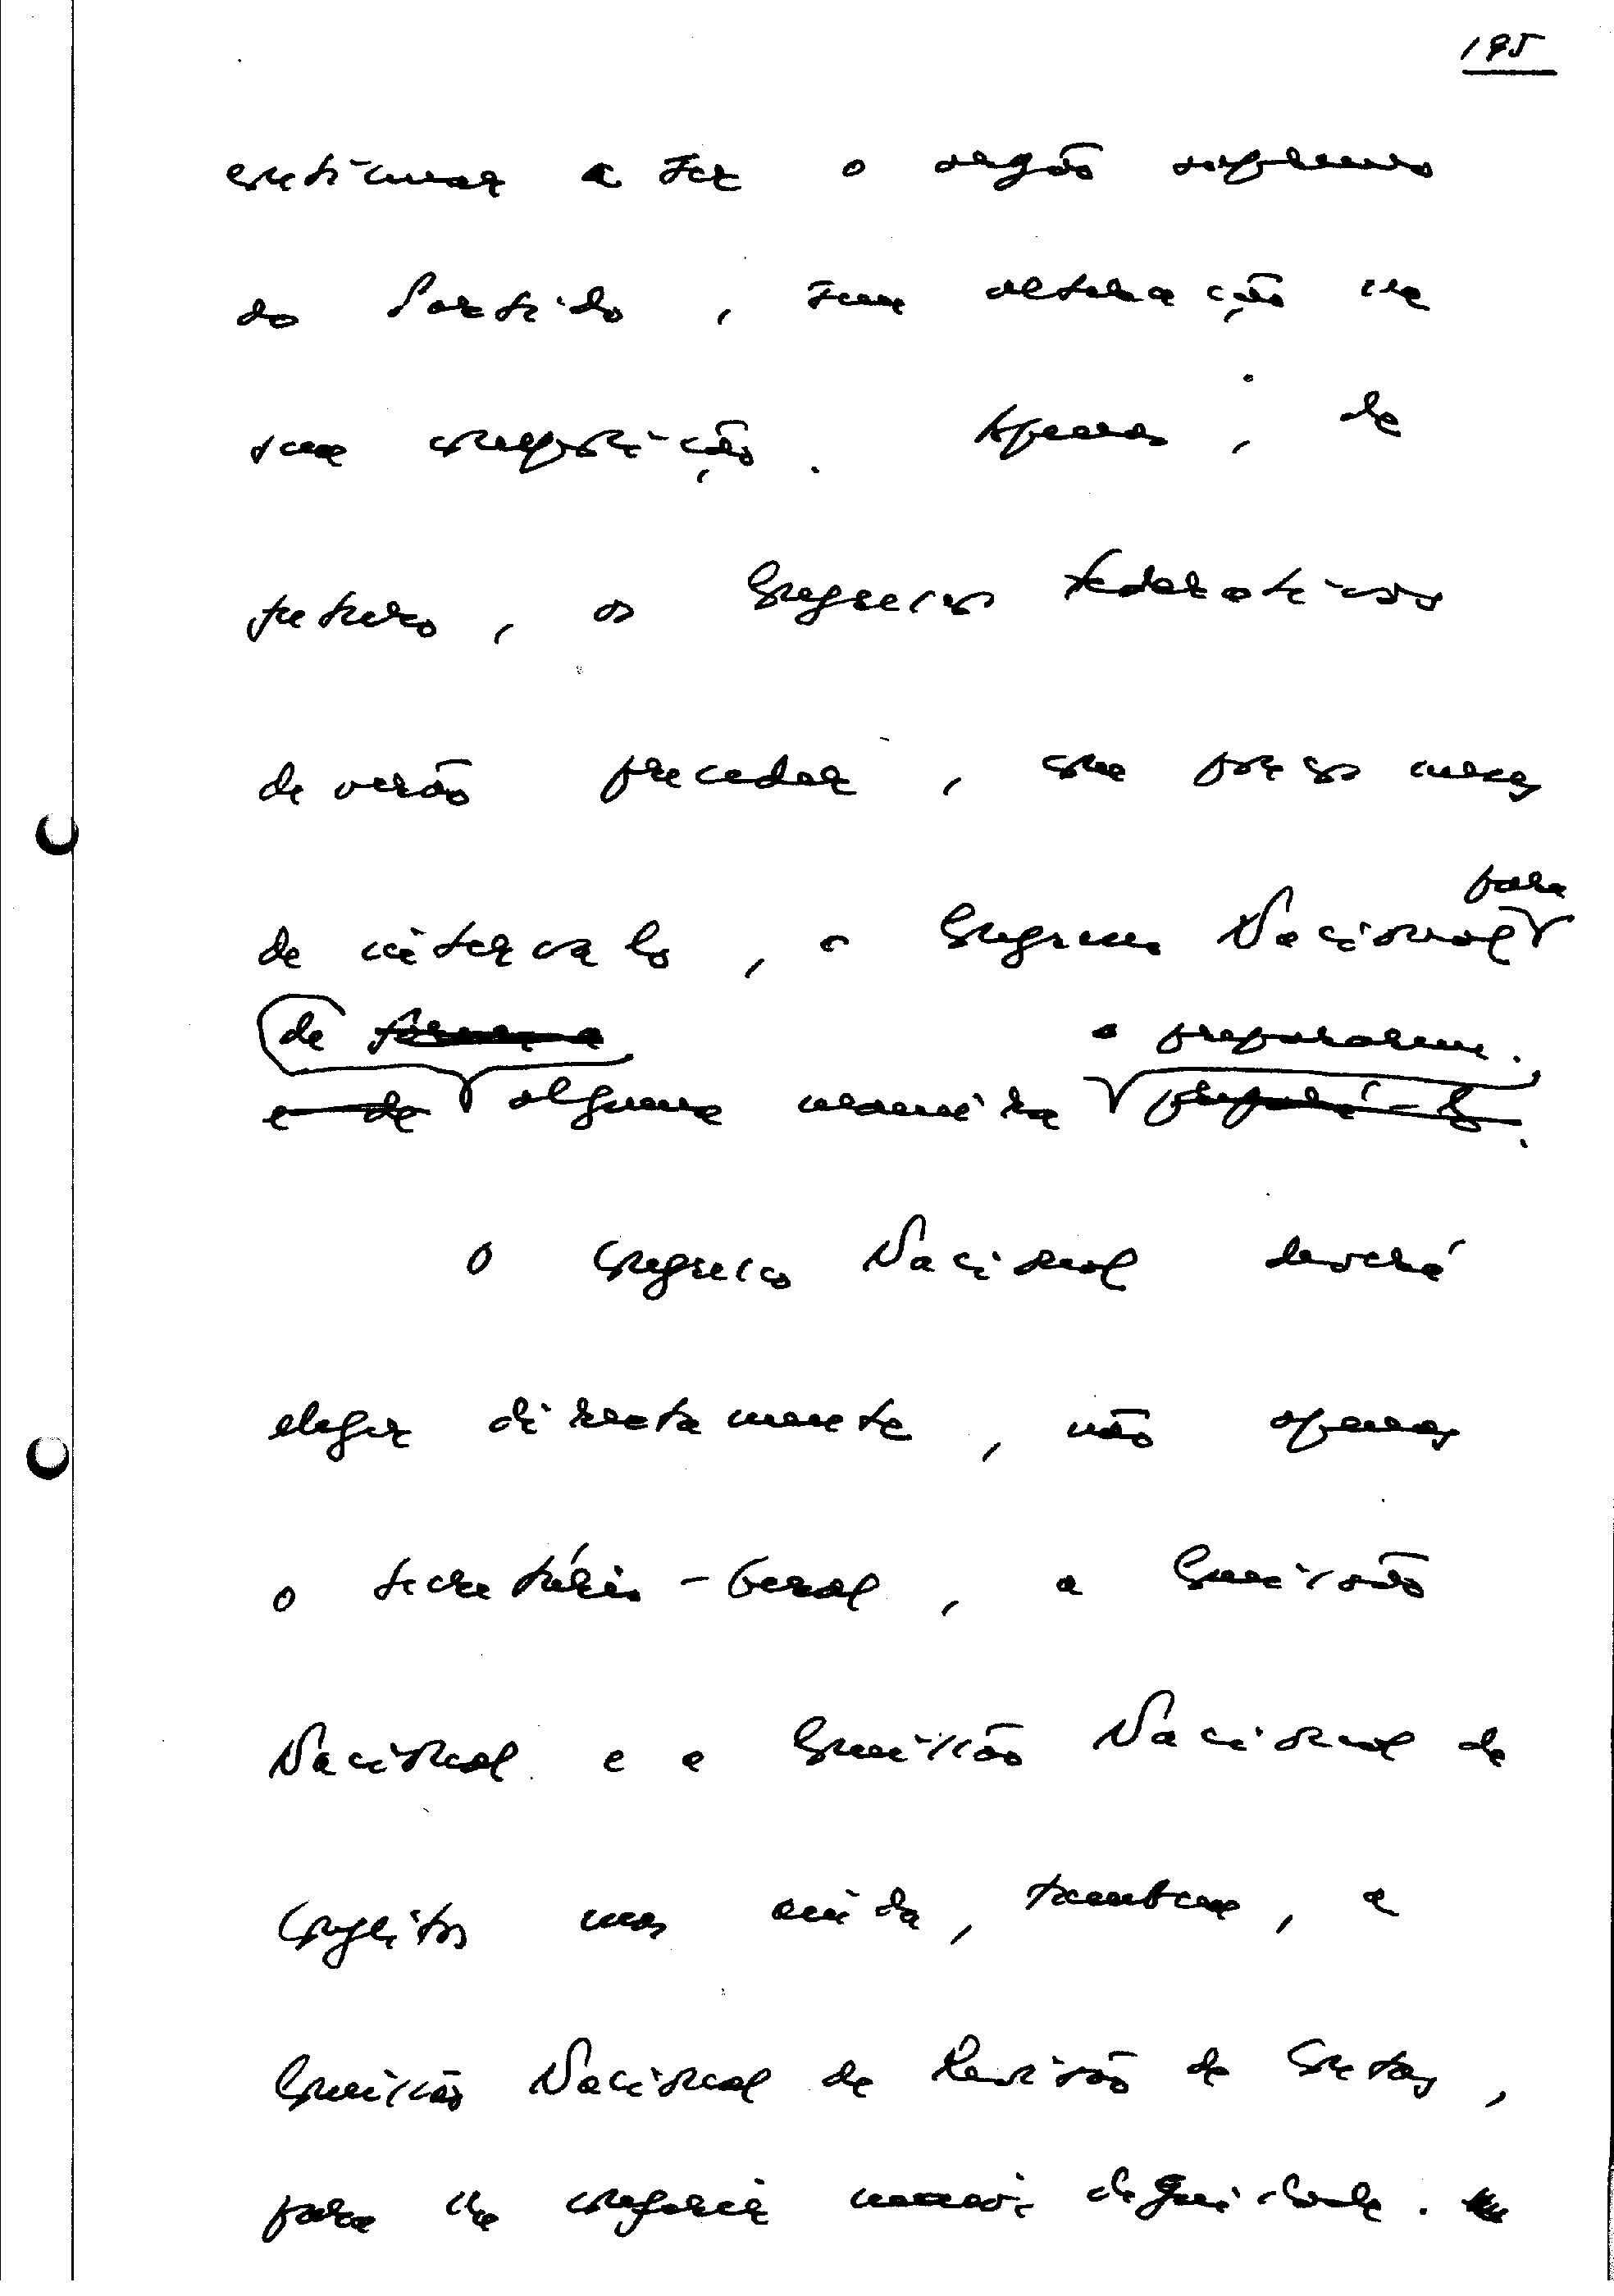 195
continuar a ser o orgão supremo
do Partido, sem alteração na
sua composição. Apenas, de
futuro, os Congressos Federativos
deverão preceder, com poucos meses
de intervalo, o Congresso Nacional para
de forma a o prepararem.
e de alguma maneira prepará-lo.
O Congresso Nacional deverá
eleger directamente, não apenas
o Secretário-Geral, a Comissão
Nacional e a Comissão Nacional de
Conflitos mas ainda, também, a
Comissão Nacional de Revisão de Contas,
para lhe conferir maior dignidade.